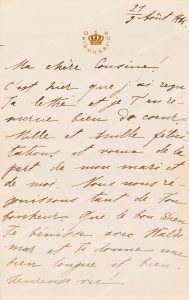 Ma chère Cousine!
C'est hier que j'ai reçu
ta lettre et je t'en re-
mercie bien de coeur.
Mille et mille félici-
tations et voeux de la
part de mon mari et
de moi. Nous nous ré-
jouissons tant de ton
bonheur. Que le bon Dieu
te bénisse avec Walde-
mar et te donne une
bien longue et bien
heureuse vie!